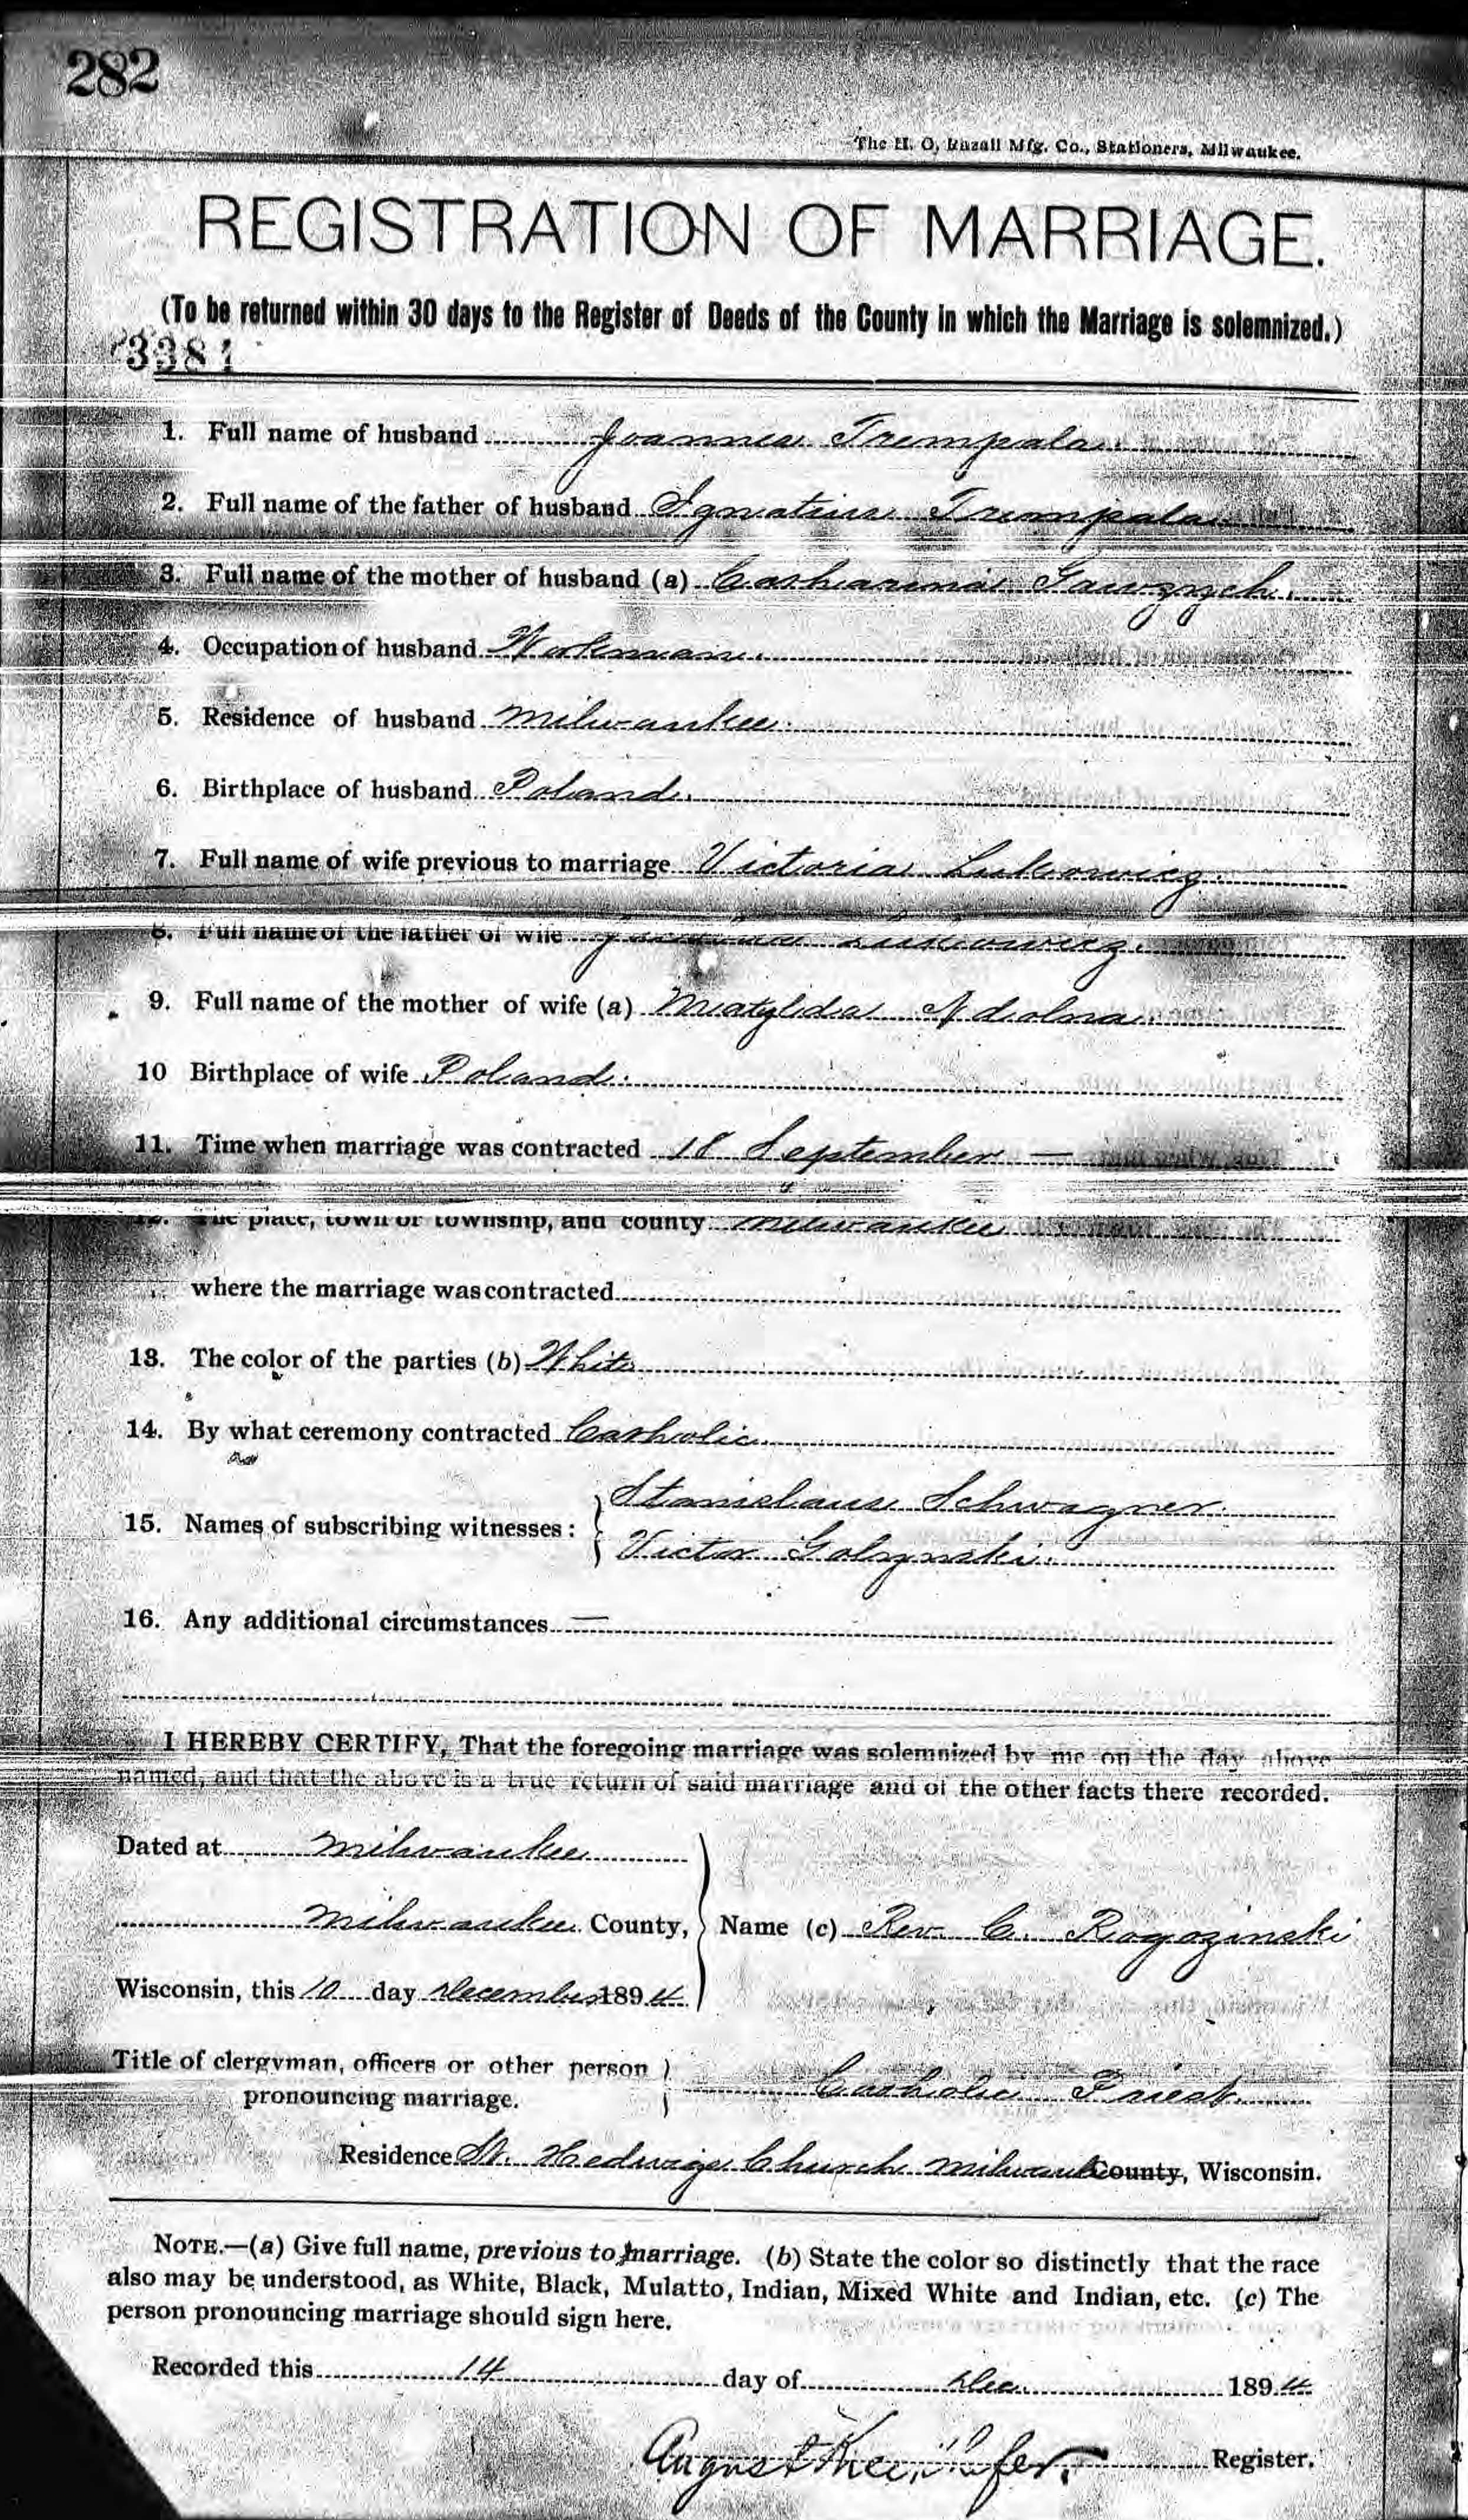 282
The H. O. Brzall Mfg. Co., Stationers, Milwaukee.
REGISTRATION OF MARRIAGE.
(To be returned within 30 days to the Register of Deeds of the County in which the Marriage is solemnized.)
1. Full name of husband Joannes Trempala.
2. Full name of the father of husband Ignatius Trempala.
3. Full name of the mother of husband (a) Catharina Gawrzych.
4. Occupation of husband Workman.
5. Residence of husband Milwaukee.
6. Birthplace of husband Poland.
7. Full name of wife previous to marriage Victoria Lukowicz.
8. Full name of the father of wife Lukowicz.
9. Full name of the mother of wife (a) Matylda Adolna.
10 Birthplace of wife Poland.
11. Time when marriage was contracted 18 September —
12. The place, town or township, and county Milwaukee
where the marriage was contracted
13. The color of the parties (b) White
14. By what ceremony contracted Catholic.
15. Names of subscribing witnesses: Stanislaus Schwagner.
Victor Golzynski.
16. Any additional circumstances —
I HEREBY CERTIFY, That the foregoing marriage was solemnized by me on the day above
named, and that the above is a true return of said marriage and of the other facts there recorded.
Dated at Milwaukee
Milwaukee County, Name (c) Rev. C. Rogozinski
Wisconsin, this 10 day December 1894
Title of clergyman, officers or other person
pronouncing marriage. Catholic Priest.
Residence St. Hedwigs Church Milwaukee County, Wisconsin.
NOTE.—(a) Give full name, previous to marriage. (b) State the color so distinctly that the race
also may be understood, as White, Black, Mulatto, Indian, Mixed White and Indian, etc. (c) The
person pronouncing marriage should sign here.
Recorded this 14 day of Dec. 1894
August Register.